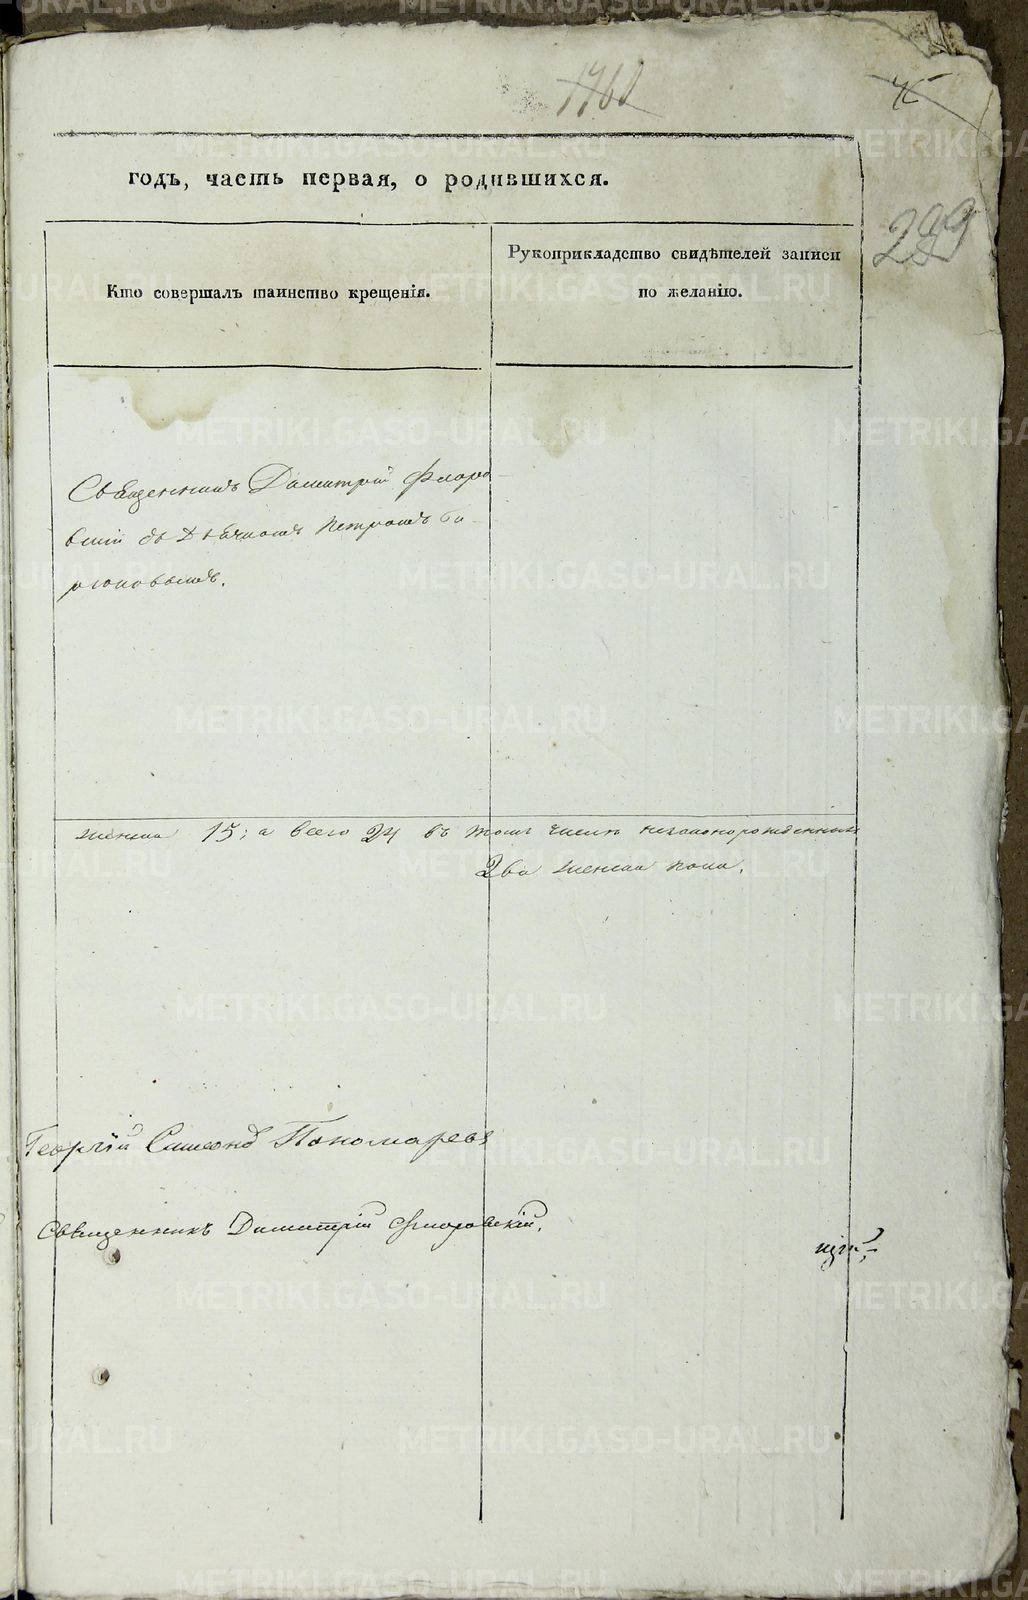 1760
75
годъ, часть первая, о родившихся.
289
Кто совершалъ таинство крещенія.
Рукоприкладство свидѣтелей записи
по желанію.
Священникъ Димитрій Флоро
вскій съ Дьячкомъ Петромъ Би
рюковымъ.
женска 15; а всего 24 въ томъ числѣ незаконорожденныхъ
два женска пола.
Георгій Симеоновъ Пономаревъ
Священникъ Димитрій Флоровскій.
METRIKI.GASO-URAL.RU